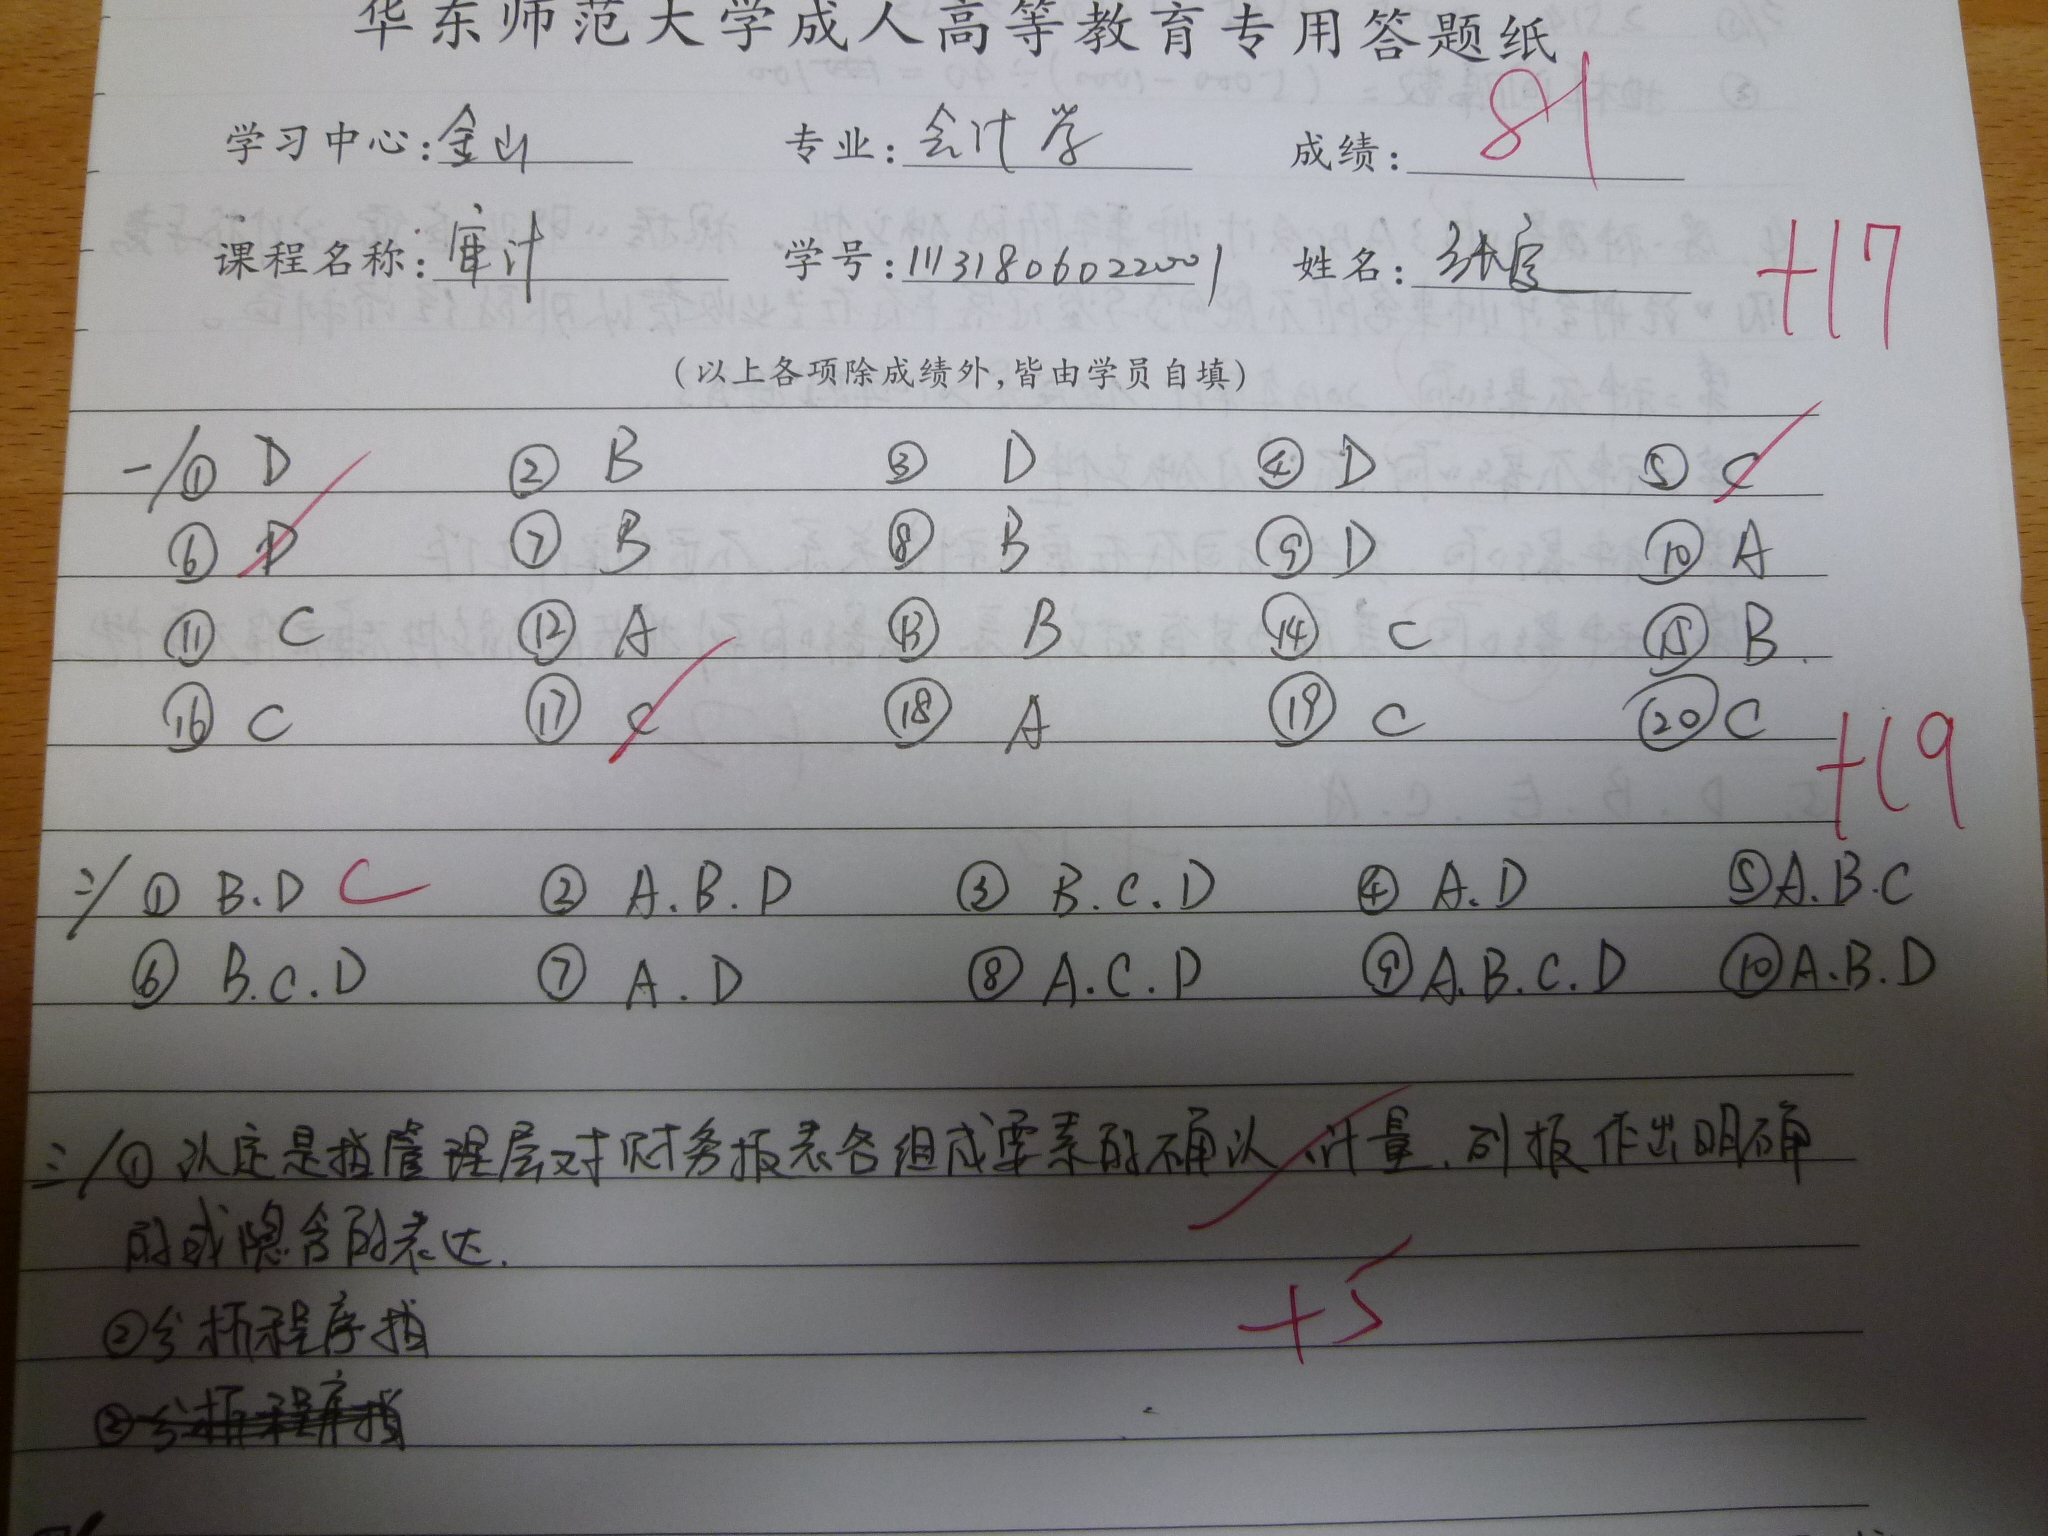 华东师范大学成人高等教育专用答题纸
学习中心:金山 专业:会计学 成绩:81
课程名称:审计 学号:1113180602001 姓名:张 +17
(以上各项除成绩外,皆由学员自填)
一/① D ② B ③ D ④ D ⑤ C
⑥ D ⑦ B ⑧ B ⑨ D ⑩ A
⑪ C ⑫ A ⑬ B ⑭ C ⑮ B
⑯ C ⑰ C ⑱ A ⑲ C ⑳ C
+19
二/① B.D C ② A.B.D ③ B.C.D ④ A.D ⑤ A.B.C
⑥ B.C.D ⑦ A.D ⑧ A.C.D ⑨ A.B.C.D ⑩ A.B.D
三/① 认定是指管理层对财务报表各组成要素的确认、计量、列报作出明确
的或隐含的表达.
+5
②分析程序指
②分析程序指